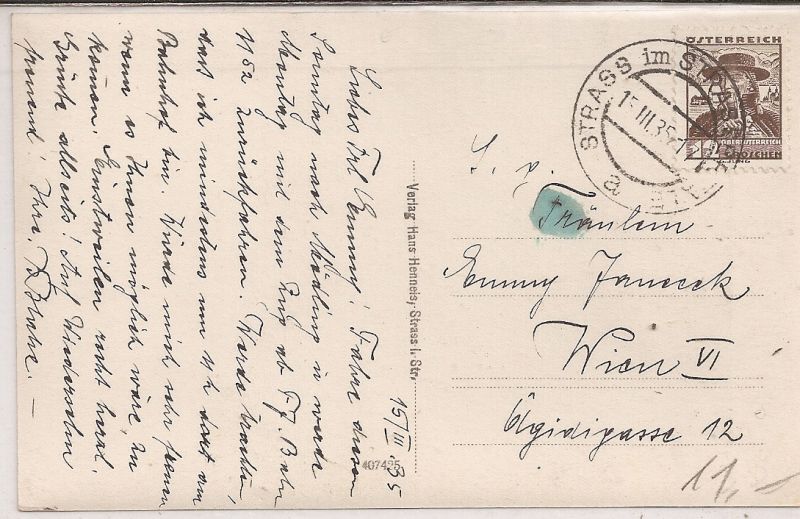 15/III.35
Liebes Frl Emmy! Fahre diesen
Sonntag nach Mödling u. werde
Montag mit dem Zug ab F. J. Bahn
1152 zurückfahren. Werde trachten,
dass ich mindestens um ½ dort am
Bahnhof bin. Würde mich sehr freuen
wenn es Ihnen möglich wäre zu
kommen. Einstweilen recht herzl.
Grüsse allseits! Auf Wiedersehn
Ihre
Verlag Hans Henneis, Strass i. Str.
407425
STRASS im
a
15.III.35
ÖSTERREICH
12
OBERÖSTERREICH
GROSCHEN
S. g.
Fräulein
Emmy Janecek
Wien VI
Ägidigasse 12
11,-